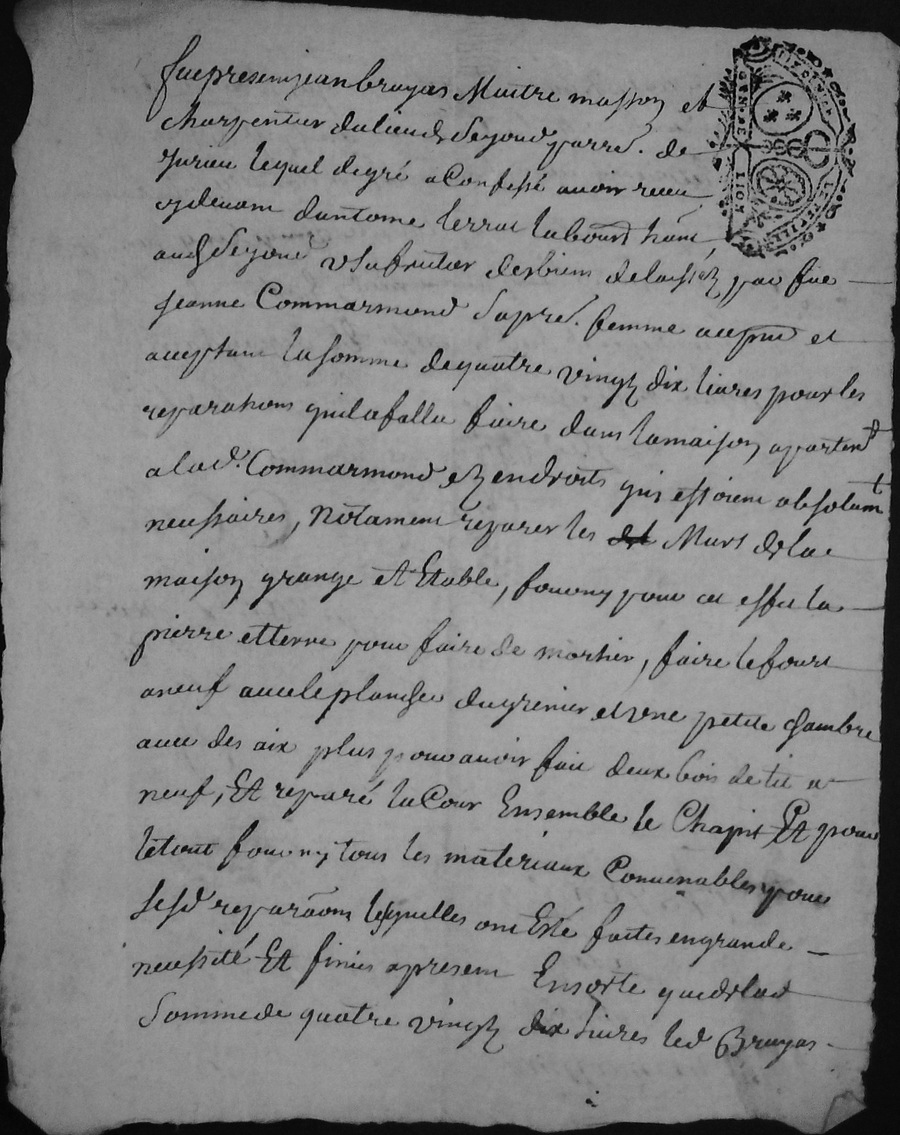 fut present jean bruyas Maitre masson et
charpentier du lieu de Seyoud parre. de
Jurieu lequel de gré a Confessé avoir receu
cy devant d'antoine terrat laboureur hant
aud Seyoud usufruitier des biens delaissez par fue
jeanne Commarmond Sa pred. femme au pnt et
acceptant la somme de quatre vingt dix livres pour les
reparations quil a fallu faire dans la maison apartent
a lad. Commarmond ez endroits quis estoient absolumt
necessaires, Notament reparer les Murs de la
maison grange et Etable, fourny pour cet effet la
pierre et terre pour faire de mortier, faire le four
a neuf avec le plancher du grenier et une petite chambre
avec des aix plus pour avoir fait deux bois de lit a
neuf, Et reparé la Cour Ensemble le Chapit Et pour
le tout fourny tous les materiaux Convenables pour
lesd reparaons lesquelles ont Esté faites en grande
necessité Et finies a present En sorte que de lad
Somme de quatre vingt dix livres led Bruyas